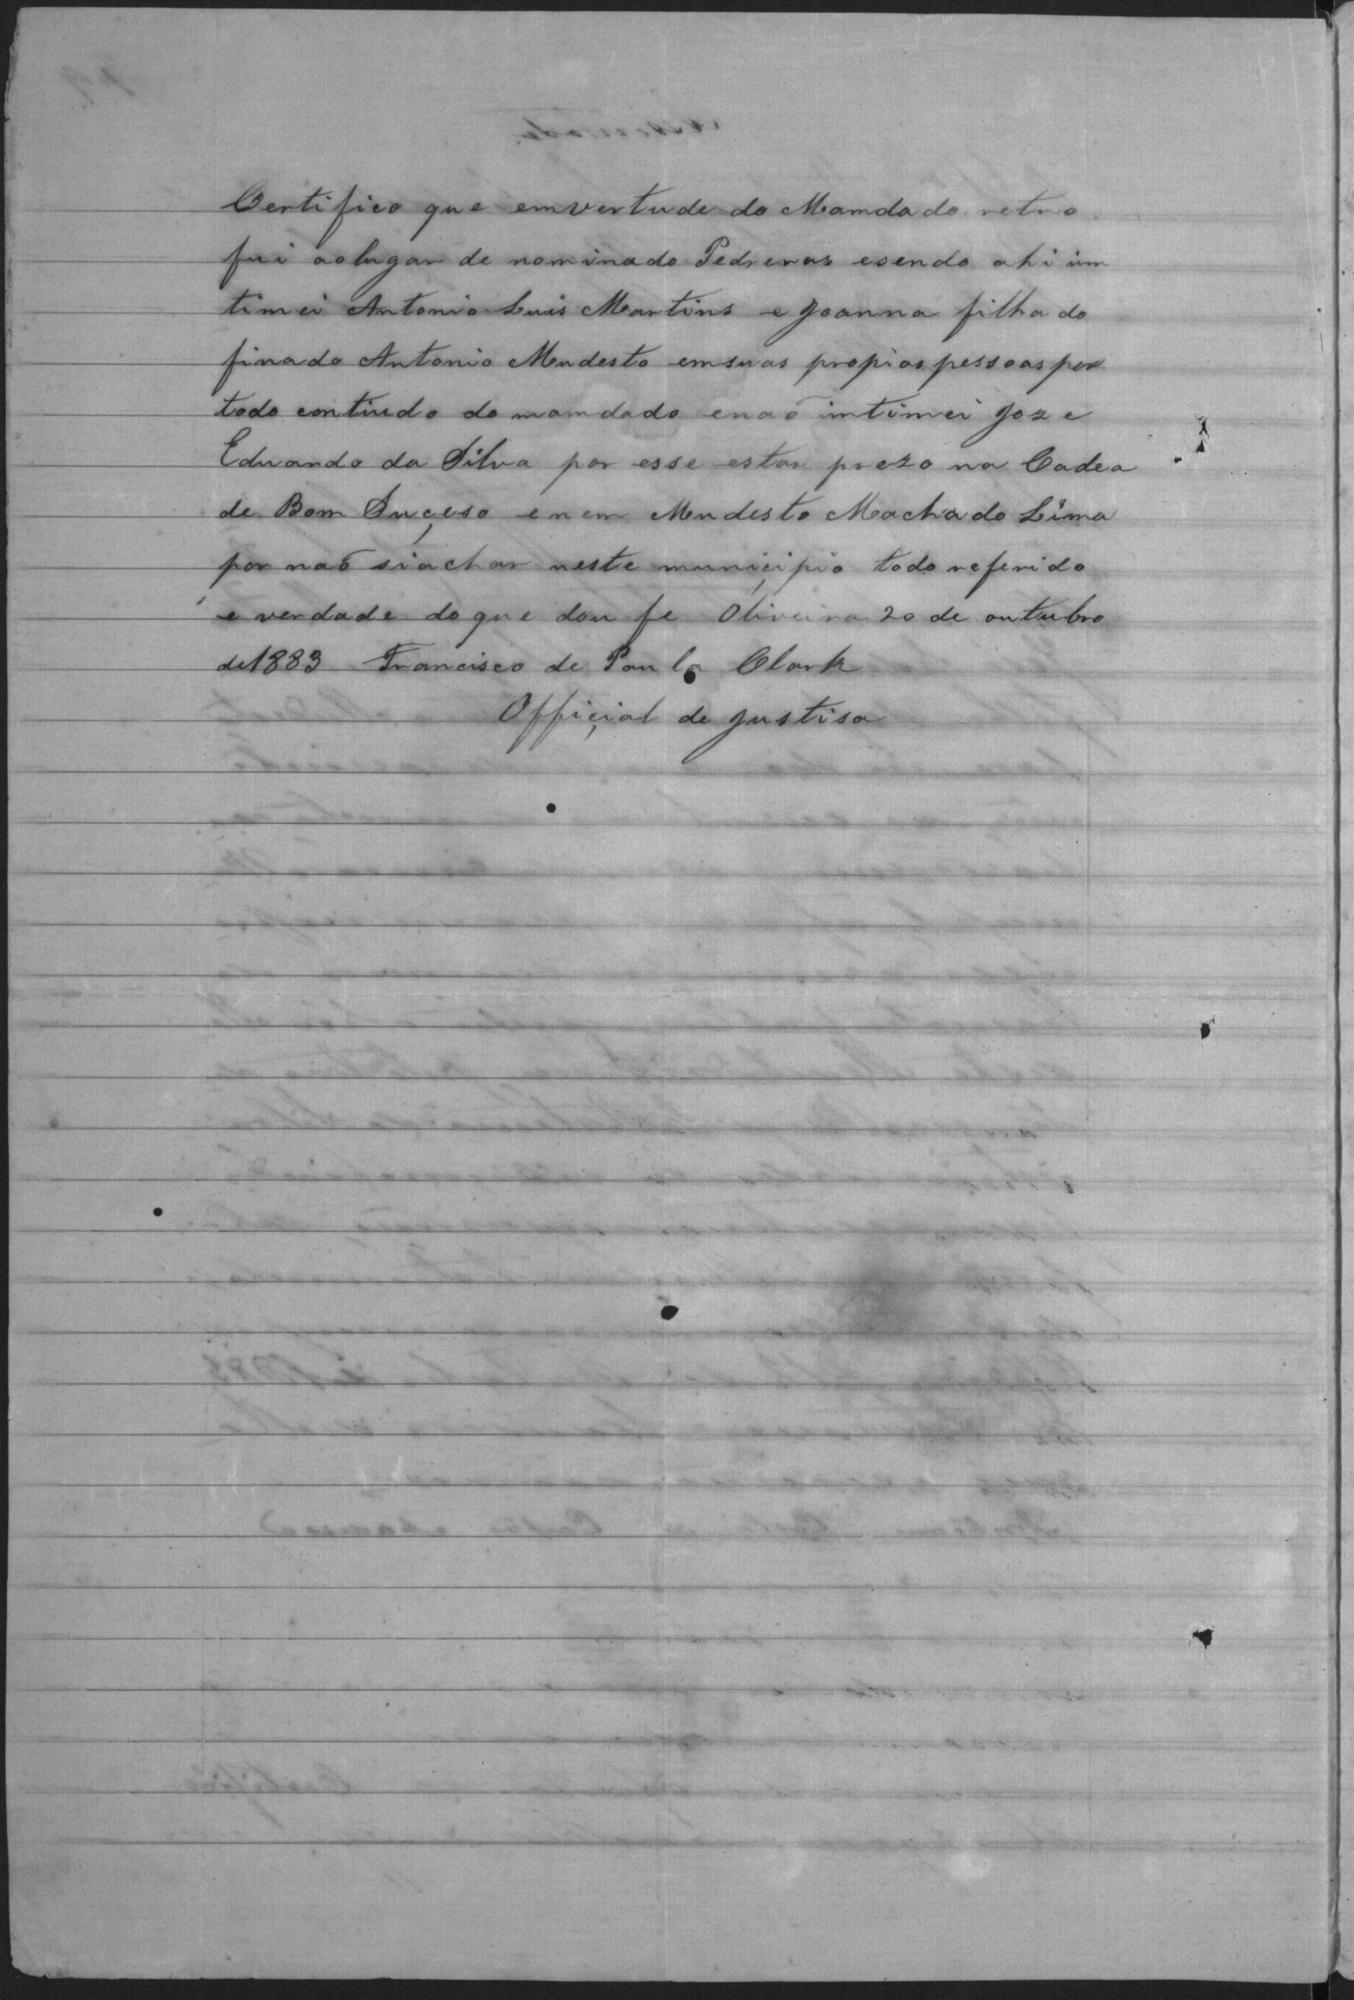 Certifico que emvertude do Mamdado retro
fui aolugar de nominado Pedreras esendo ahi im
timei Antonio Luis Martins e Joanna filha do
finado Antonio Mudesto emsuas propias pessoas por
todo contiudo do mamdado enaõ imtimei Joze
Eduardo da Silva por esse estar prezo na Cadea
de Bom Suçeso enem Mudesto Machado Lima
por naõ siachar neste muniçipio todo referido
e verdade doque dou fe Oliveira 20 de outubro
de 1883 Francisco de Paula Clark
Offiçial de justisa